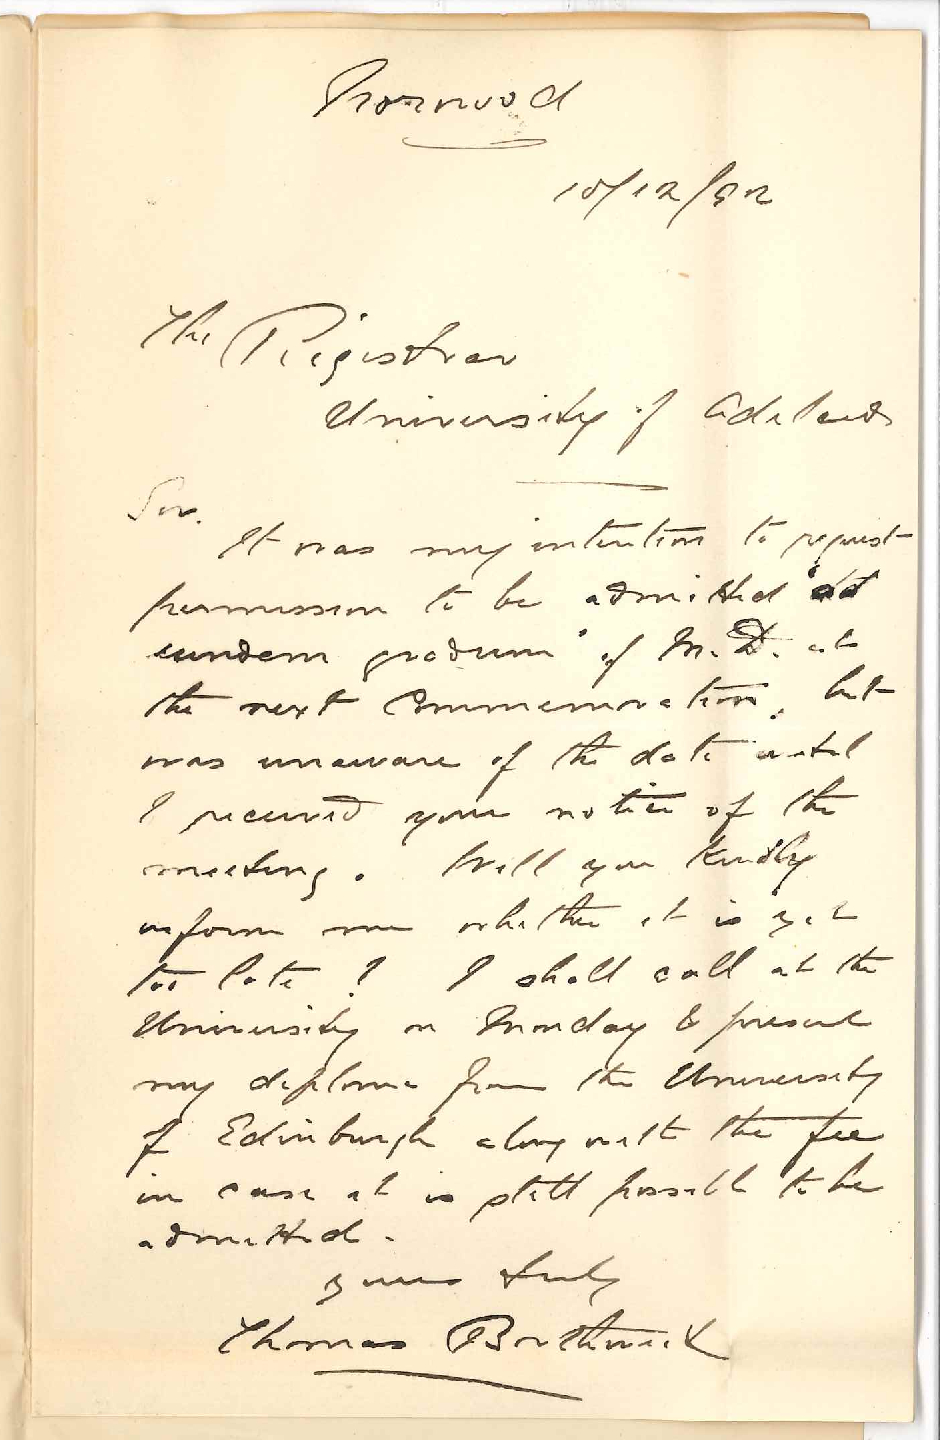 Norwood
10/12/92
The Registrar
University of Adelaide
Sir.
It was my intention to request
permission to be admitted "ad
eundem gradum" of M.D. at
the next Commemoration, but
was unaware of the date until
I received your notice of the
meeting. Will you kindly
inform me whether it is yet
too late? I shall call at the
University on Monday & present
my diploma from the University
of Edinburgh along with the fee
in case it is still possible to be
admitted.
yours truly
Thomas Borthwick